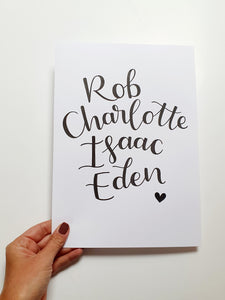 Rob
Charlotte
Isaac
Eden